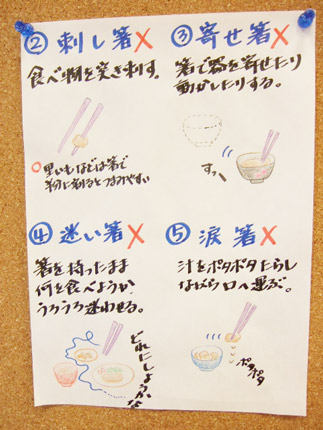 ② 刺し箸✕
食べ物を突き刺す。
○里いもなどは箸で
半分に割るとつまみやすい
③ 寄せ箸✕
箸で器を寄せたり
動かしたりする。
すっ
④ 迷い箸✕
箸を持ったまま
何を食べようか
うろうろ迷わせる。
どれにしようかな
⑤ 涙箸✕
汁をポタポタたらし
ながら口へ運ぶ。
ポタポタ